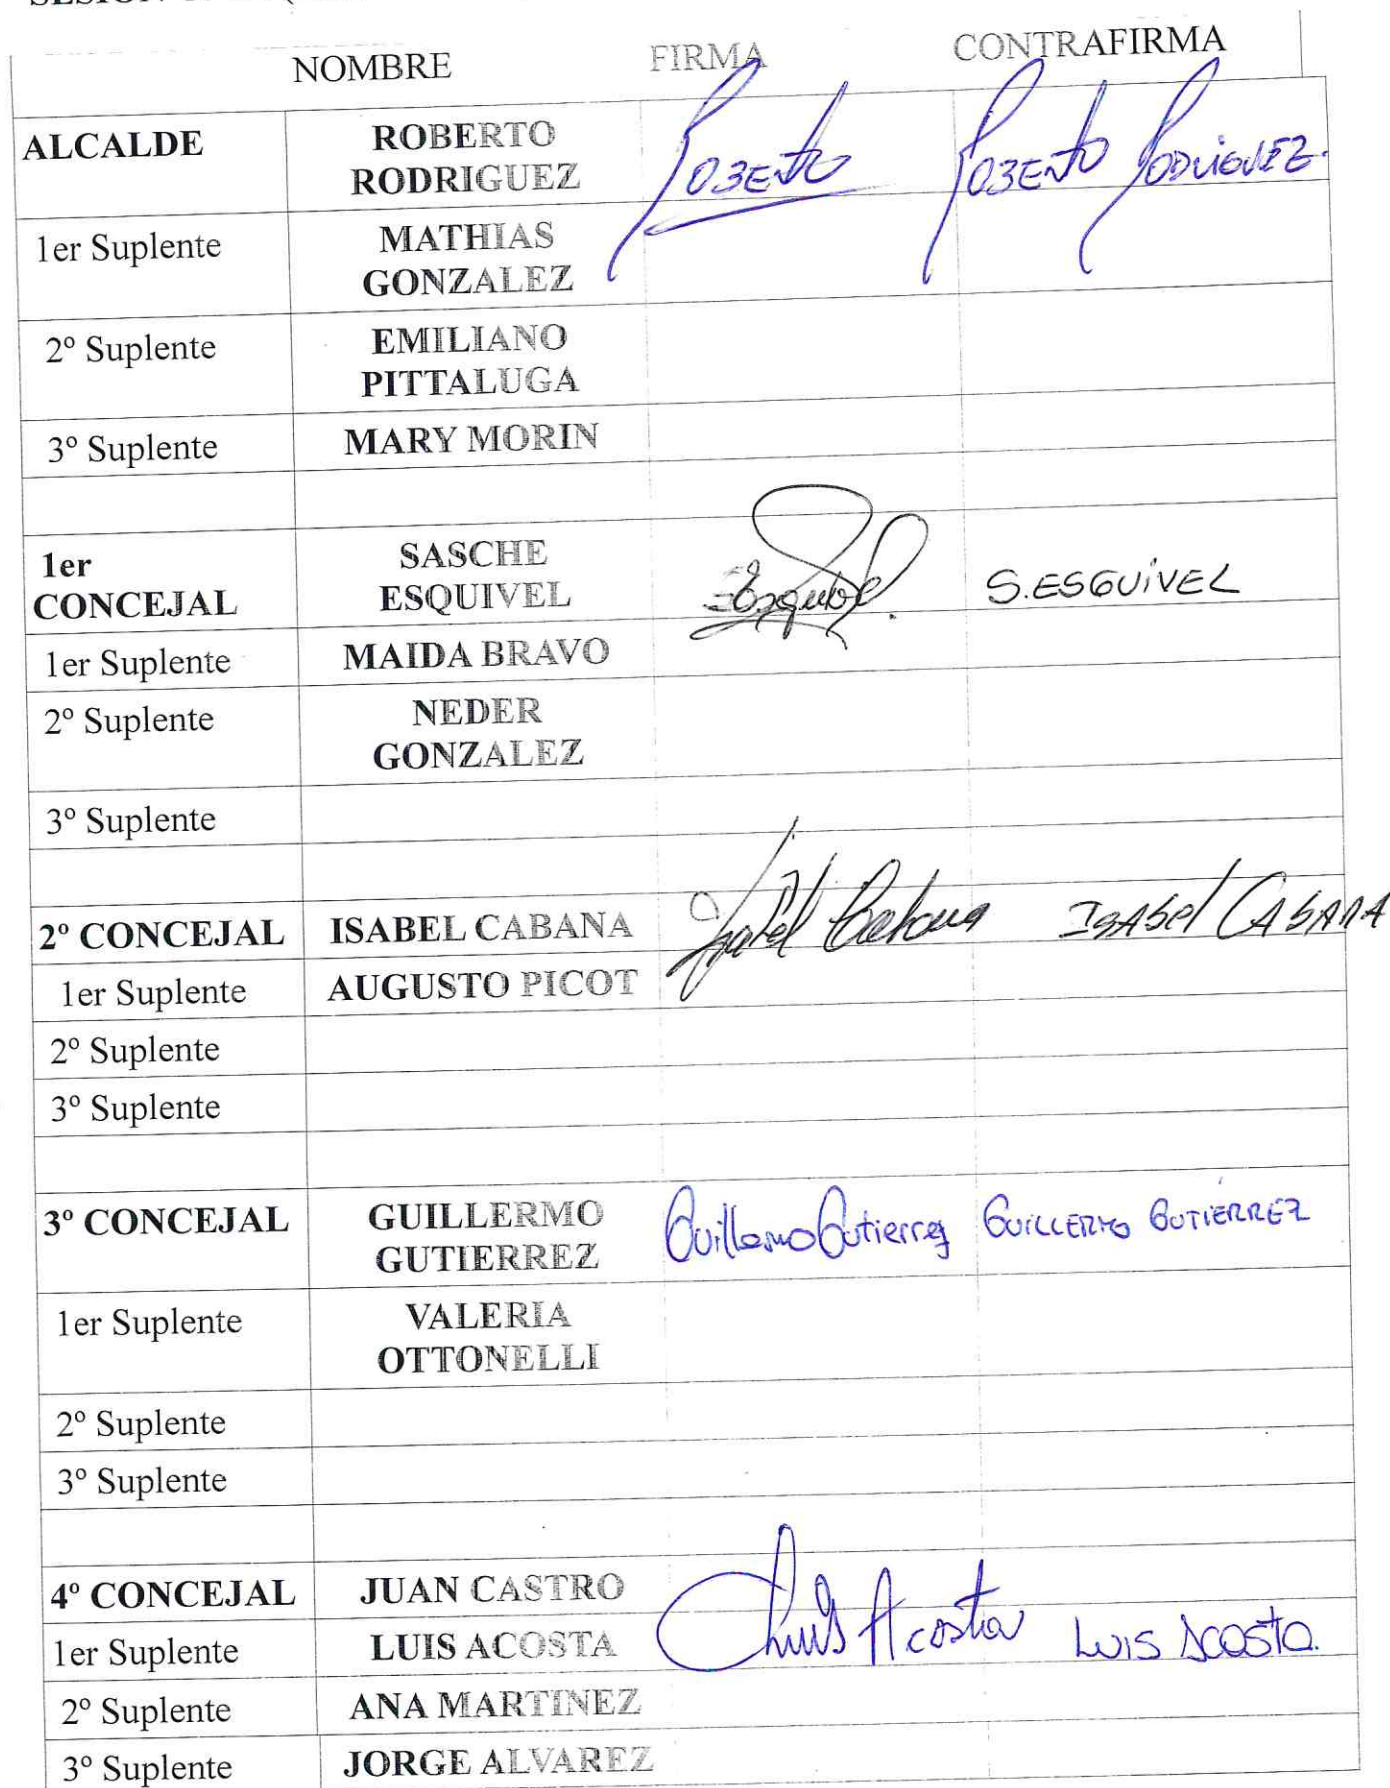 NOMBRE FIRMA CONTRAFIRMA
ALCALDE ROBERTO RODRIGUEZ Roberto Roberto Rodriguez.
1er Suplente MATHIAS GONZALEZ
2º Suplente EMILIANO PITTALUGA
3º Suplente MARY MORIN
1er CONCEJAL SASCHE ESQUIVEL Esquivel. S. ESGUiVEL
1er Suplente MAIDA BRAVO
2º Suplente NEDER GONZALEZ
3º Suplente
2º CONCEJAL ISABEL CABANA Isabel Cabana ISAbel CAbANA
1er Suplente AUGUSTO PICOT
2º Suplente
3º Suplente
3º CONCEJAL GUILLERMO GUTIERREZ Guillermo Gutierrez GUILLERMO GUTIERREZ
1er Suplente VALERIA OTTONELLI
2º Suplente
3º Suplente
4º CONCEJAL JUAN CASTRO
1er Suplente LUIS ACOSTA Luis Acosta LUIS ACOSTA.
2º Suplente ANA MARTINEZ
3º Suplente JORGE ALVAREZ